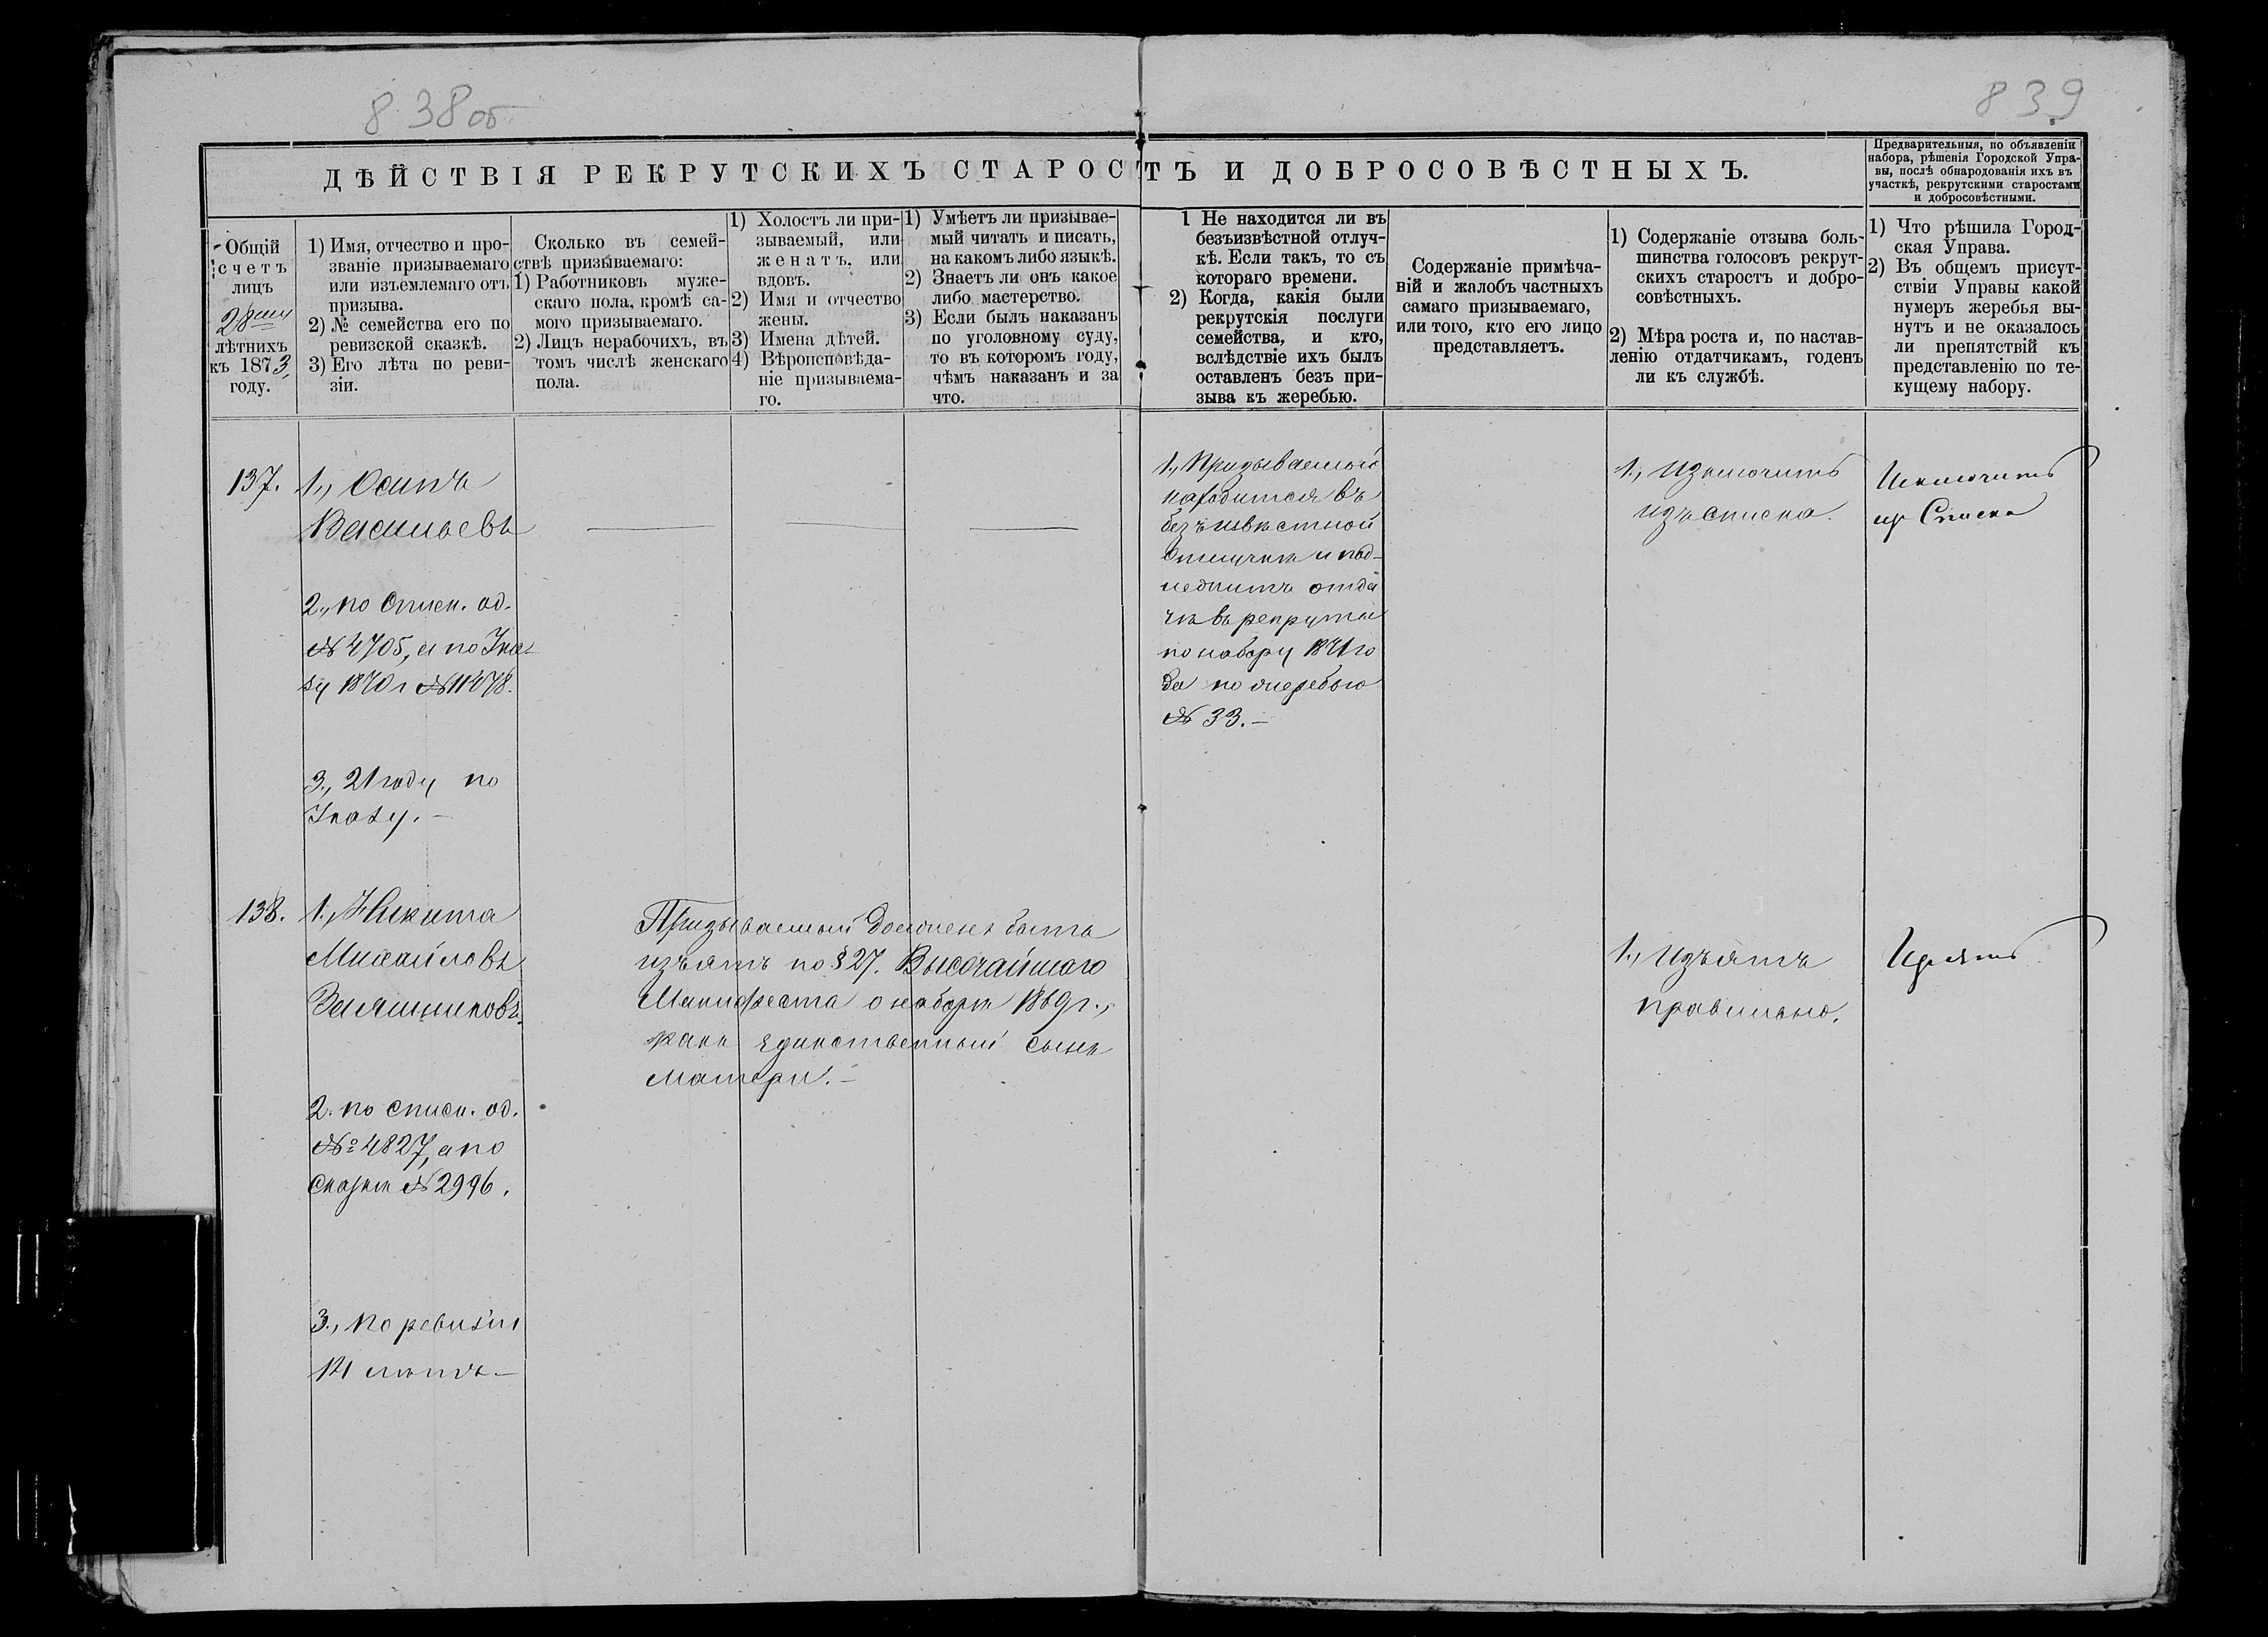 838об
839
ДѢЙСТВІЯ РЕКРУТСКИХЪ СТАРОСТЪ И ДОБРОСОВѢСТНЫХЪ.
Предварительныя, по объявленіи
набора, рѣшенія Городской Упра-
вы, послѣ обнародованія ихъ въ
участкѣ, рекрутскими старостами
и добросовѣстными.
Общій
счетъ
лицъ
28ми
лѣтнихъ
къ 1873,
году.
1) Имя, отчество и про-
званіе призываемаго
или изъемлемаго отъ
призыва.
2) № семейства его по
ревизской сказкѣ.
3) Его лѣта по реви-
зіи.
Сколько въ семей-
ствѣ призываемаго:
1) Работниковъ муже-
скаго пола, кромѣ са-
мого призываемаго.
2) Лицъ нерабочихъ, въ
томъ числѣ женскаго
пола.
1) Холостъ ли при-
зываемый, или
женатъ, или
вдовъ.
2) Имя и отчество
жены.
3) Имена дѣтей.
4) Вѣроисповѣда-
ніе призываема-
го.
1) Умѣетъ ли призывае-
мый читать и писать,
на какомъ либо языкѣ.
2) Знаетъ ли онъ какое
либо мастерство.
3) Если былъ наказанъ
по уголовному суду,
то въ которомъ году,
чѣмъ наказанъ и за
что.
1 Не находится ли въ
безъизвѣстной отлуч-
кѣ. Если такъ, то съ
котораго времени.
2) Когда, какія были
рекрутскія послуги
семейства, и кто,
вслѣдствіе ихъ былъ
оставленъ безъ при-
зыва къ жеребью.
Содержаніе примѣча-
ній и жалобъ частныхъ
самаго призываемаго,
или того, кто его лицо
представляетъ.
1) Содержаніе отзыва боль-
шинства голосовъ рекрут-
скихъ старостъ и добро-
совѣстныхъ.
2) Мѣра роста и, по настав-
ленію отдатчикамъ, годенъ
ли къ службѣ.
1) Что рѣшила Город-
ская Управа.
2) Въ общемъ присут-
ствіи Управы какой
нумеръ жеребья вы-
нутъ и не оказалось
ли препятствій къ
представленію по те-
кущему набору.
137.
1., Осипъ
Васильевъ
2., по списк. од.
№ 4705, а по Ука-
зу 1870 г №11478.
3., 21 году по
Указу.—
1., Призываемый
находится въ
безъизвѣстной
отлучкѣ и под-
лежитъ отда
чѣ въ рекруты
по набору 1871 го
да по жеребью
№ 33.—
1., Изключить
изъ списка.
Исключить
из Списка
138.
1., Никита
Михайловъ
2. по списк. од.
№ 4827, а по
сказкѣ № 2996.
3., По ревизіи
14 лѣтъ—
Призываемый долженъ быть
изъятъ по § 27. Высочайшаго
Манифеста о наборѣ 1869 г.,
какъ единственный сынъ
матери.—
1., Изъятъ
правильно.
Изъять